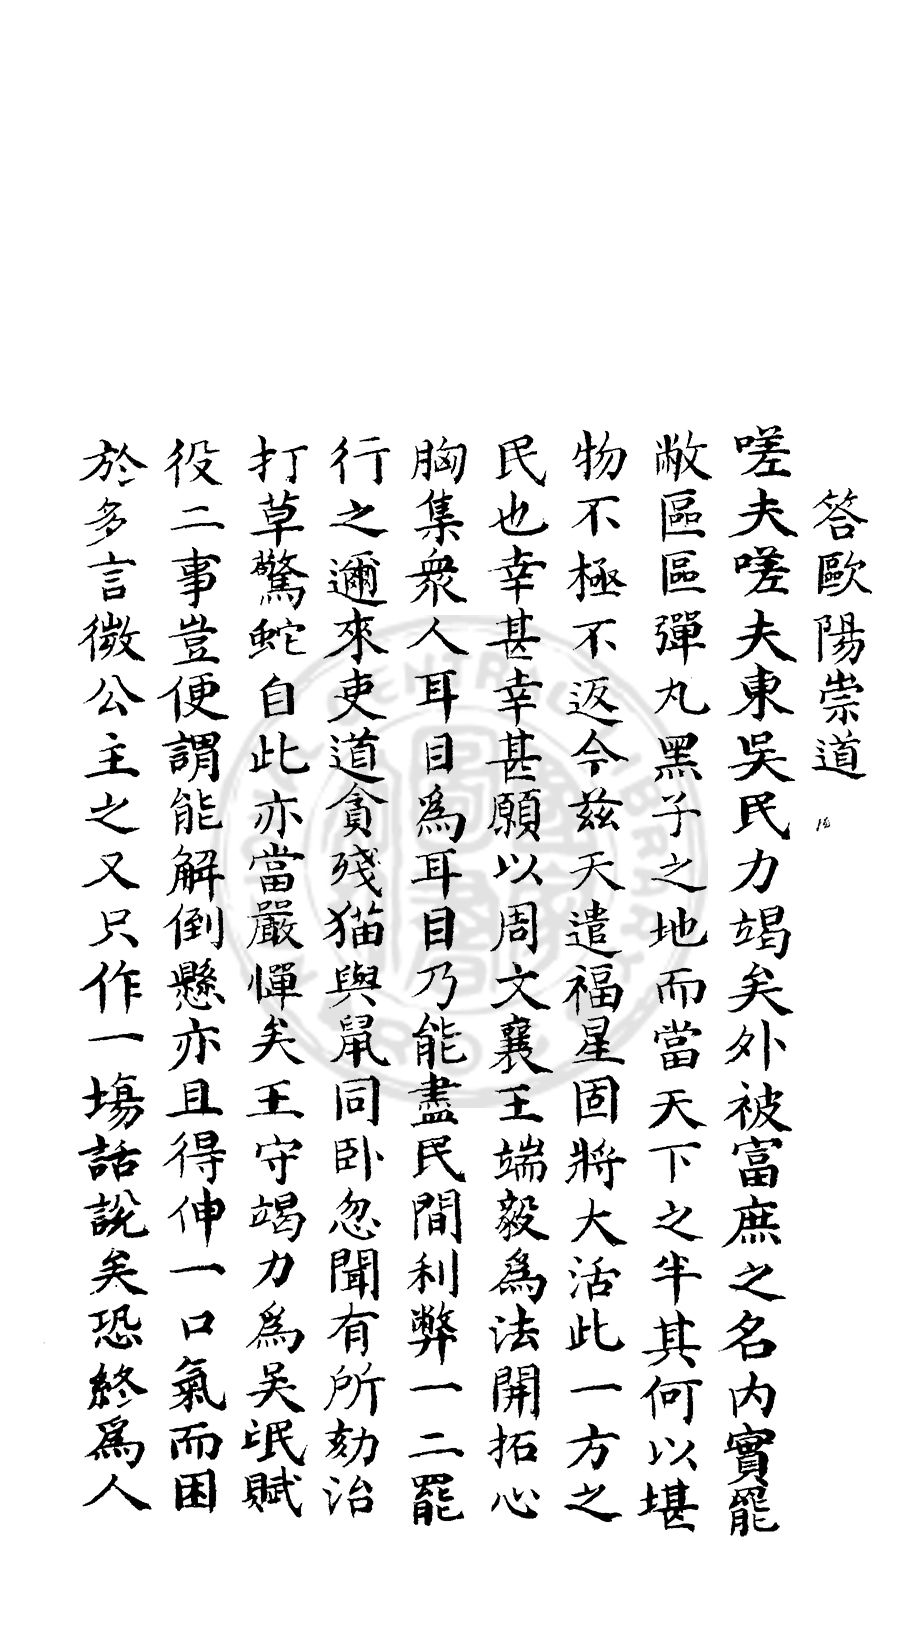 答歐陽崇道
嗟夫嗟夫東吳民力竭矣外被富庶之名内實罷
敝區區彈丸黑子之地而當天下之半其何以堪
物不極不返今兹天遣福星固將大活此一方之
民也幸甚幸甚願以周文襄王端毅爲法開拓心
胸集衆人耳目爲耳目乃能盡民間利弊一二罷
行之邇來吏道貪殘猫與鼠同卧忽聞有所劾治
打草驚蛇自此亦當嚴憚矣王守竭力爲吴氓賦
役二事豈便謂能解倒懸亦且得伸一口氣而困
於多言微公主之又只作一塲話說矣恐終爲人